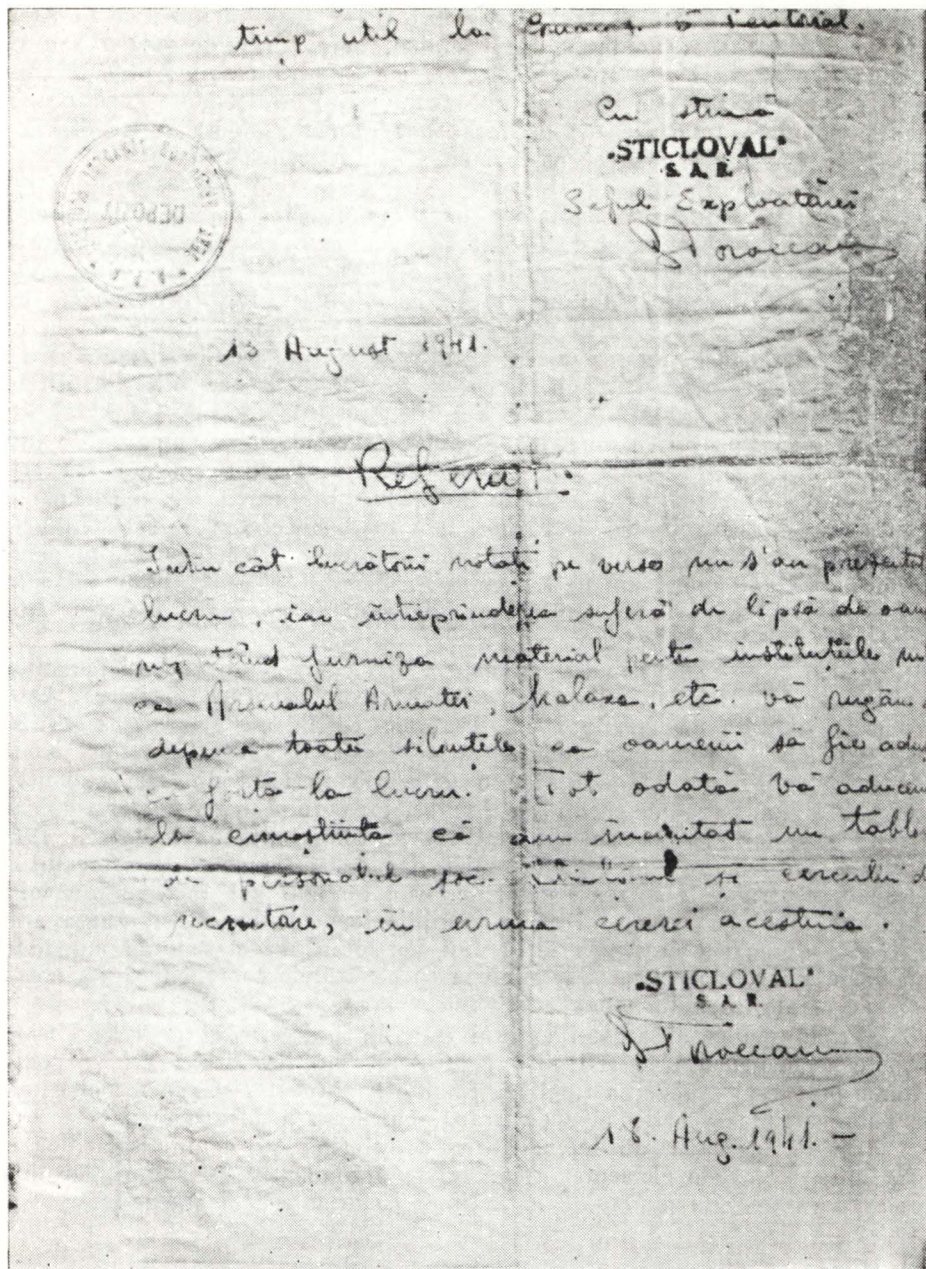 timp util la Teritorial.
Cu stimă
"STICLOVAL"
S. A. R.
Șeful Exploatării
DEPOZIT
13 August 1941.
Referat:
Întru cât lucrătorii notați pe verso nu s'au prezentat
lucru, iar întreprinderea suferă de lipsă de oam
furniza material pentru instituțiile
ca Arsenalul Armatei, Malaxa, etc. vă rugăm
depune toate silințele ca oamenii să fie adu
forță la lucru. Tot odată vă aducem
la cunoștință că am înaintat un tabl
de personalul soc. și cercului d
recrutare, în urma cererei acestuia.
"STICLOVAL"
S. A. R.
18. Aug. 1941. -